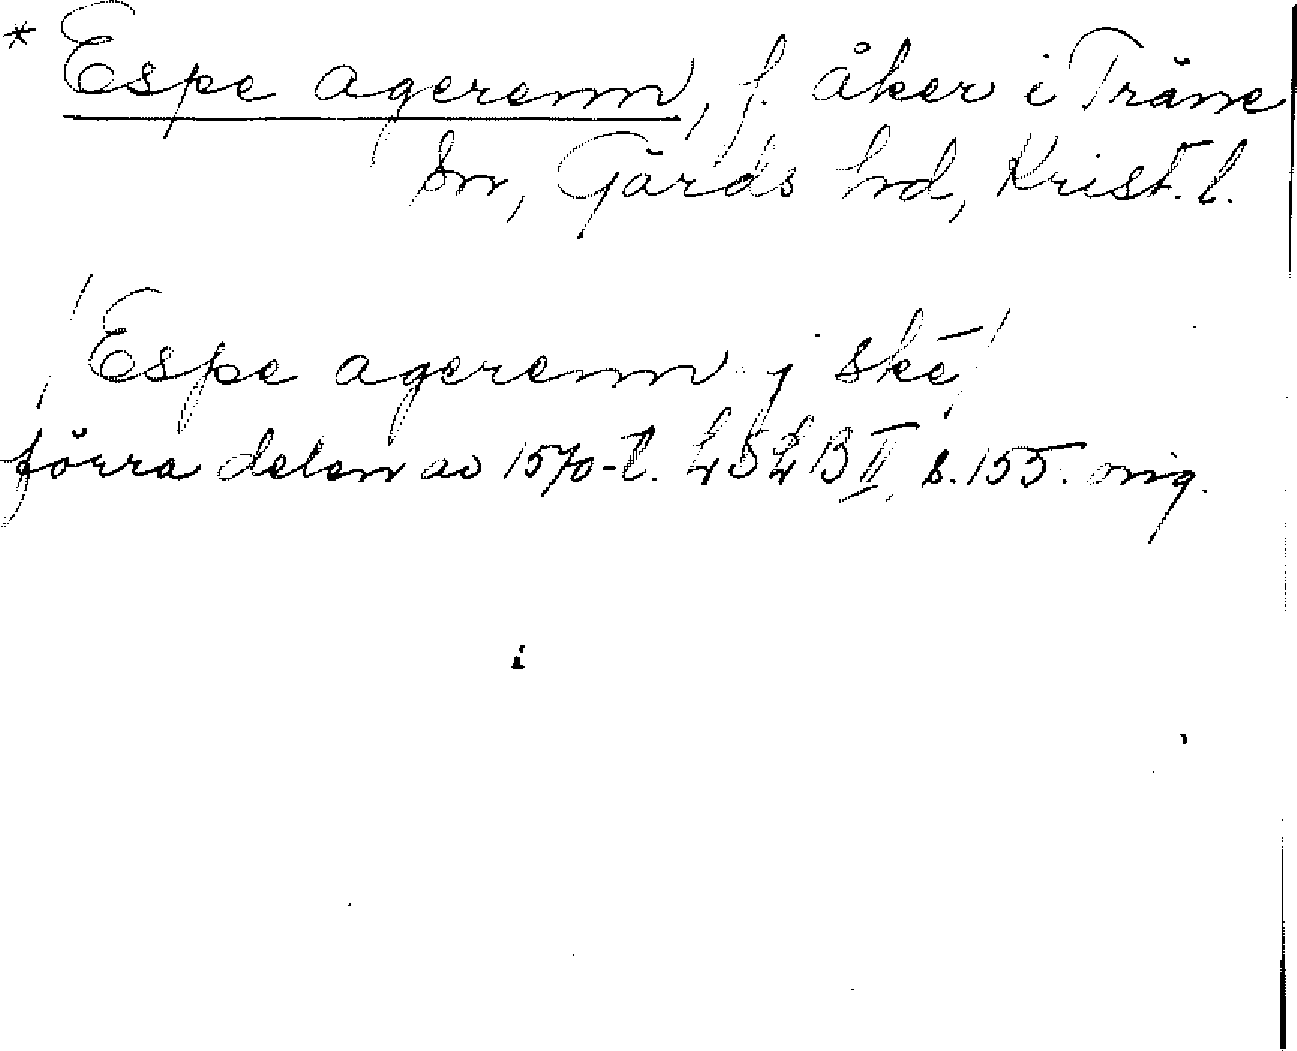 * Espe agerenn, f. åker i Träne
sn, Gärds hd, Krist. l.
/Espe agerenn j skē/
förra delen av 1570-t. LSLB II, s. 155. orig.